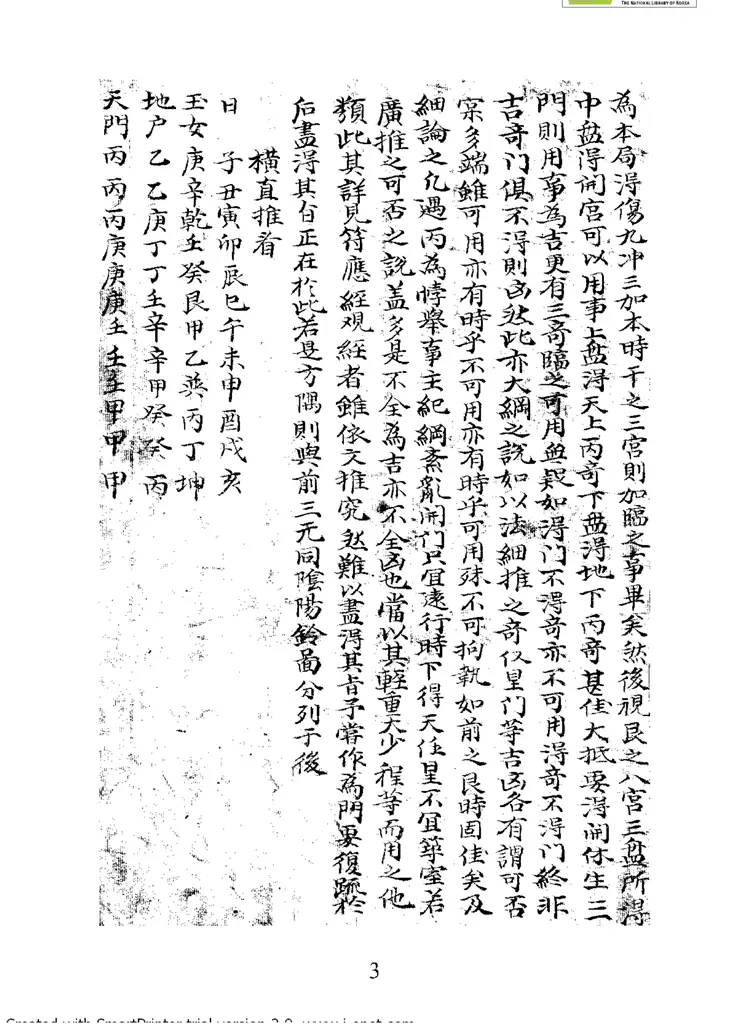 THE NATIONAL LIBRARY OF KOREA
為本局得傷九冲三加本時干之三宮則加臨之事畢矣然後視艮之八宮三盤所得
中盘得開宮可以用事上盘得天上丙奇下盘得地下丙奇甚佳大抵要得開休生三
門則用事為吉更有三奇臨之可用無疑如得门不得奇亦不可用得奇不得门終非
吉奇门俱不得則凶然此亦大綱之説如以法細推之奇仪星门等吉凶各有謂可否
寀多端雖可用亦有時乎不可用亦有時乎可用殊不可拘執如前之艮時固佳矣及
細論之凢遇丙為悖舉事主紀綱紊亂開门只宜遠行時下得天任星不宜築室若
廣推之可否之説盖多是不全為吉亦不全凶也當以其輕重大少程等而用之他
類此其詳見符應經观經者雖依文推究然難以盡得其旨予嘗作為門要復䟽於
后盡得其白正在於此若是方隅則與前三元同陰陽鈴啚分列于後
橫直推看
日 子丑寅卯辰巳午未申酉戌亥
玉女庚辛乾壬癸艮甲乙巽丙丁坤
地户乙乙庚丁丁壬辛辛甲癸癸丙
天門丙丙丙庚庚庚壬壬壬甲甲甲
3
Created with SmartPrinter trial version